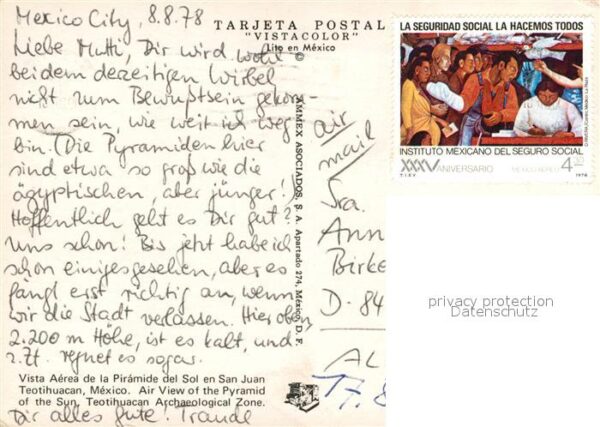 Mexico City, 8.8.78
TARJETA POSTAL
"VISTACOLOR"
Lito en México
©
Liebe Mutti, Dir wird wohl
bei dem derzeitigen Wirbel
nicht zum Bewußtsein gekom-
men sein, wie weit ich weg
bin. (Die Pyramiden hier
sind etwa so groß wie die
ägyptischen, aber jünger!)
Hoffentlich geht es Dir gut?
Uns schon! Bis jetzt habe ich
schon einiges gesehen, aber es
fängt erst richtig an, wenn
wir die Stadt verlassen. Hier oben,
2.200 m Höhe, ist es kalt, und
z.Zt. regnet es sogar.
Vista Aérea de la Pirámide del Sol en San Juan
Teotihuacan, México. Air View of the Pyramid
of the Sun, Teotihuacan Archaeological Zone.
Dir alles Gute! Traudl
AMMEX ASOCIADOS, S. A. Apartado 274, México, D. F.
air
mail
Sra.
Ann
Birke
D-84
AL
17.8
LA SEGURIDAD SOCIAL LA HACEMOS TODOS
INSTITUTO MEXICANO DEL SEGURO SOCIAL
XXXV ANIVERSARIO MEXICO AEREO 4.30
T.I.E.V. 1978
privacy protection
Datenschutz